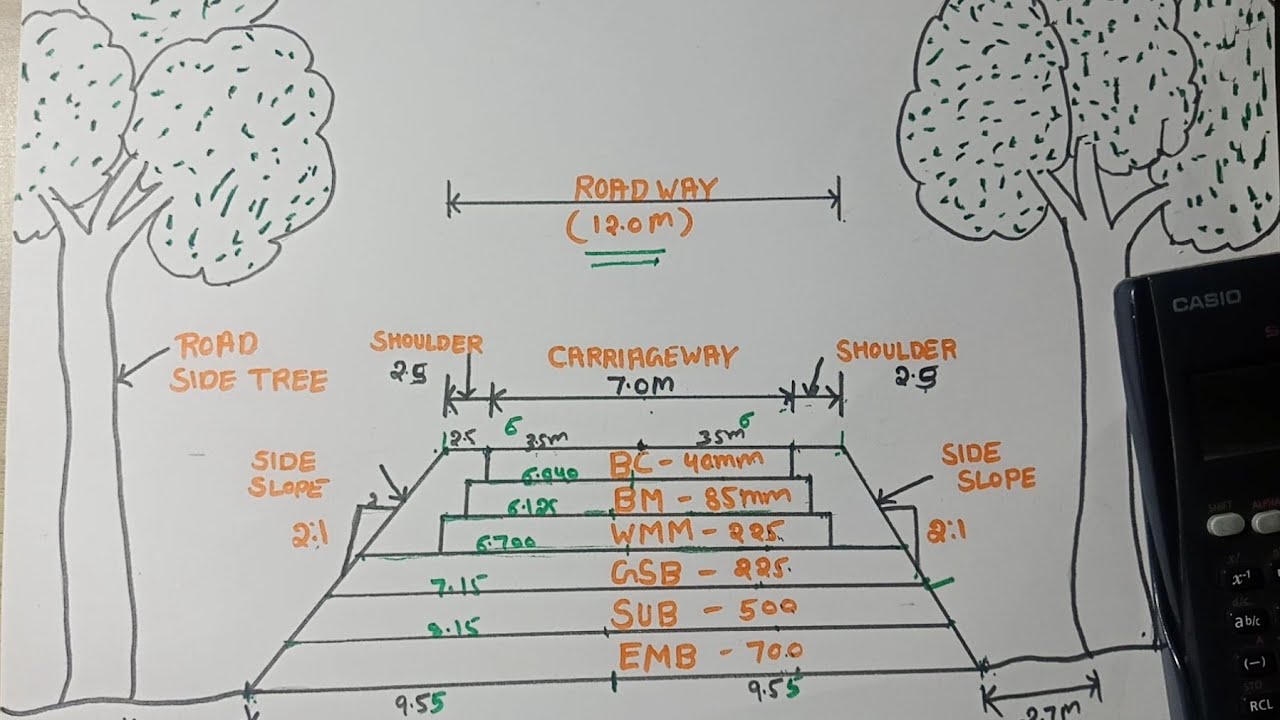 ROADWAY
(12.0m)
CASIO
ROAD
SIDE TREE
SHOULDER
2.5
CARRIAGEWAY
7.0M
SHOULDER
2.5
6
6
2.5
3.5m
3.5m
SIDE
SLOPE
2:1
SIDE
SLOPE
2:1
6.040
BC - 40mm
6.125
BM - 85mm
6.700
WMM - 225.
GSB - 225.
7.15
SUB - 500
8.15
EMB - 700
9.55
9.55
2.7m
SHIFT
x-1
ab/c
(-)
STO
RCL